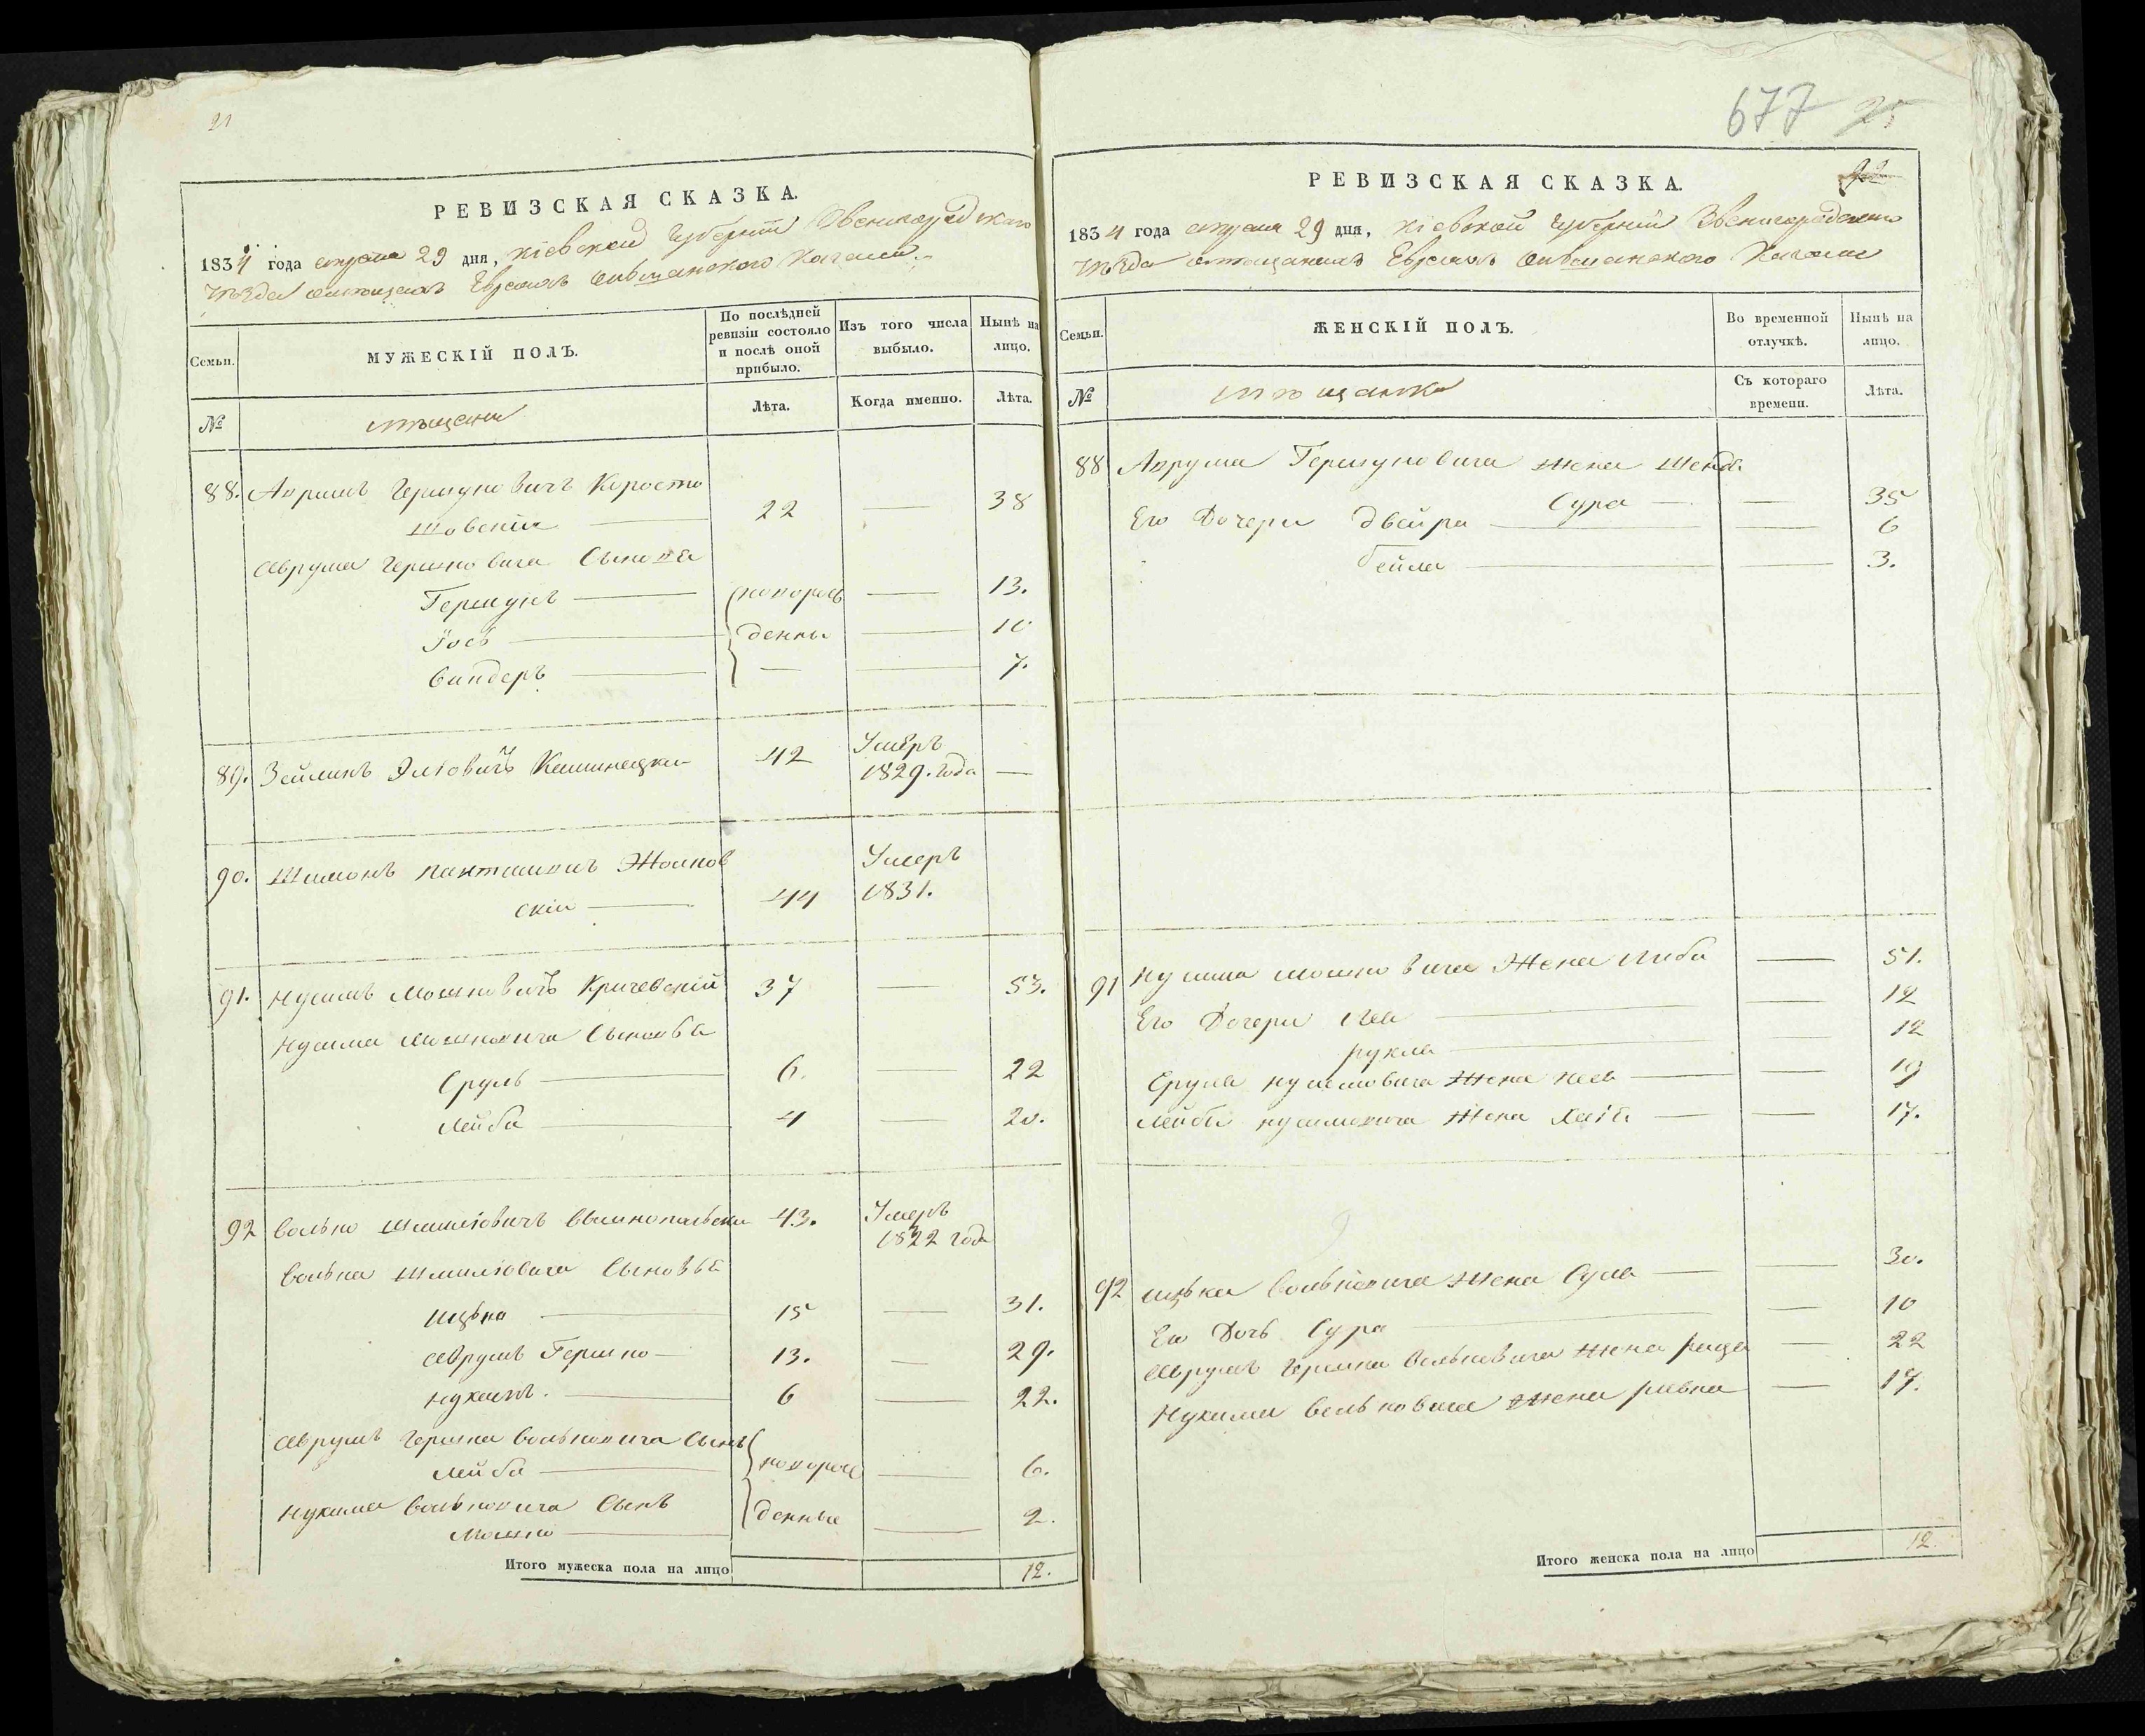 21
РЕВИЗСКАЯ СКАЗКА.
1834 года апреля 29 дня, Кіевской Губерніи Звенигородскаго
уѣзда Евреевъ Кагала
Семьи.
МУЖЕСКІЙ ПОЛЪ.
По послѣдней ревизіи состояло и послѣ оной прибыло.
Изъ того числа выбыло.
Нынѣ на лицо.
№
мѣщане
Лѣта.
Когда именно.
Лѣта.
88. Аврумъ Гершуновичъ Коросто
шовскій 22 — 38
Аврума Гершковича Сыновья
Гершунъ новорож — 13.
Іосъ денны — 10
Сандеръ — — 7.
89. Зейликъ Кашинецки 42 Умеръ
1829. года —
90. Шимонъ Жолнов Умеръ
скій 44 1831.
91. Нусимъ Мошковичъ Кричевскій 37 — 53.
Нусима Мошковича Сыновья
Сруль 6. — 22
Лейба 4 — 20.
92 Волько Шмилiовичъ 43. Умеръ
1822 года
Волька Шмилiовича Сыновья
Ицько 15 — 31.
Аврумъ Гершко 13. — 29.
Нухимъ. 6 — 22.
Аврумъ Гершка Вольковича Сынъ
Лейба новорож — 6.
Нухима Вольковича Сынъ
Мошко денные — 2.
Итого мужеска пола на лицо 12.
677 25
РЕВИЗСКАЯ СКАЗКА.
1834 года апреля 29 дня, Кіевской Губерніи Звенигородскаго
уѣзда Евреевъ Кагала
Семьи.
ЖЕНСКІЙ ПОЛЪ.
Во временной отлучкѣ.
Нынѣ на лицо.
№
мѣщанки
Съ котораго времени.
Лѣта.
88 Аврума Гершуновича жена Шейндя
Сура — — 35
Его Дочери Двейра — 6
Бейла — 3.
91 Нусима Мошковича Жена Либа — 51.
Его Дочери Лея — 12
Рукля — 12
Сруля Нусимовича Жена — 19
Лейбы Нусимовича Жена Хая — 17.
92 Ицька Вольковича Жена — 30.
Его Дочь Сура — 10
Аврумъ Гершка Вольковича Жена — 22
Нухима Вольковича Жена Ривка — 17.
Итого женска пола на лицо 12.